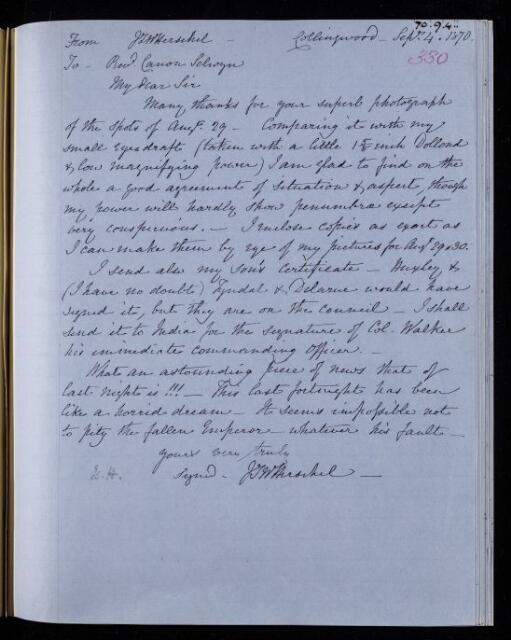 70.9.4
From JFWHerschel - Collingwood - Sept. 4. 1870.
330
To - Revd. Canon Selwyn
My dear Sir
Many thanks for your superb photograph
of the spots of Augt. 29 - Comparing it with my
small eyesdraft (taken with a little inch Dollond
& low magnifying power) I am glad to find on the
whole a good agreement of situation & aspect, though
my power will hardly show penumbræ except
very conspicuous. - I enclose copies as exact as
I can make them by eye of my pictures for Augt 29 & 30.
I send also my Son's Certificate - Huxley &
(I have no doubt) Tyndal & Delarue would have
signed it, but they are on the council - I shall
send it to India for the signature of Col. Walker
his immediate commanding Officer. -
What an astounding piece of news that of
last night is !!! - This last fortnight has been
like a horrid dream - It seems impossible not
to pity the fallen Emperor whatever his fault -
yours very truly
signd - JFWHerschel -